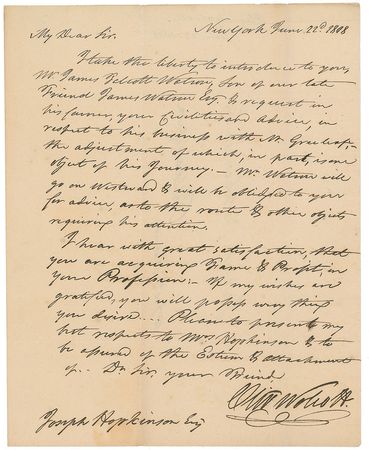 New York June 22d 1808
My Dear Sir.
I take the liberty to introduce to you,
Mr James Talcott Watson, Son of our late
Friend James Watson Esq. & request in
his favour, your Civilities and Advice, in
respect to his business with Mr Greenleaf,
the adjustment of which, in part, is one
object of his Journey. — Mr Watson will
go on Westward & will be obliged to you
for advice, as to the route & other objects
requiring his attention.
I hear with great satisfaction, that
you are acquiring Fame & Profit, in
your Profession. — If my wishes are
gratified, you will possess every thing
you desire. ... Please to present my
best respects to Mrs Hopkinson & to
be assured of the Esteem & attachment
of.. Dr Sir. your Friend
Oliv Wolcott.
Joseph Hopkinson Esq